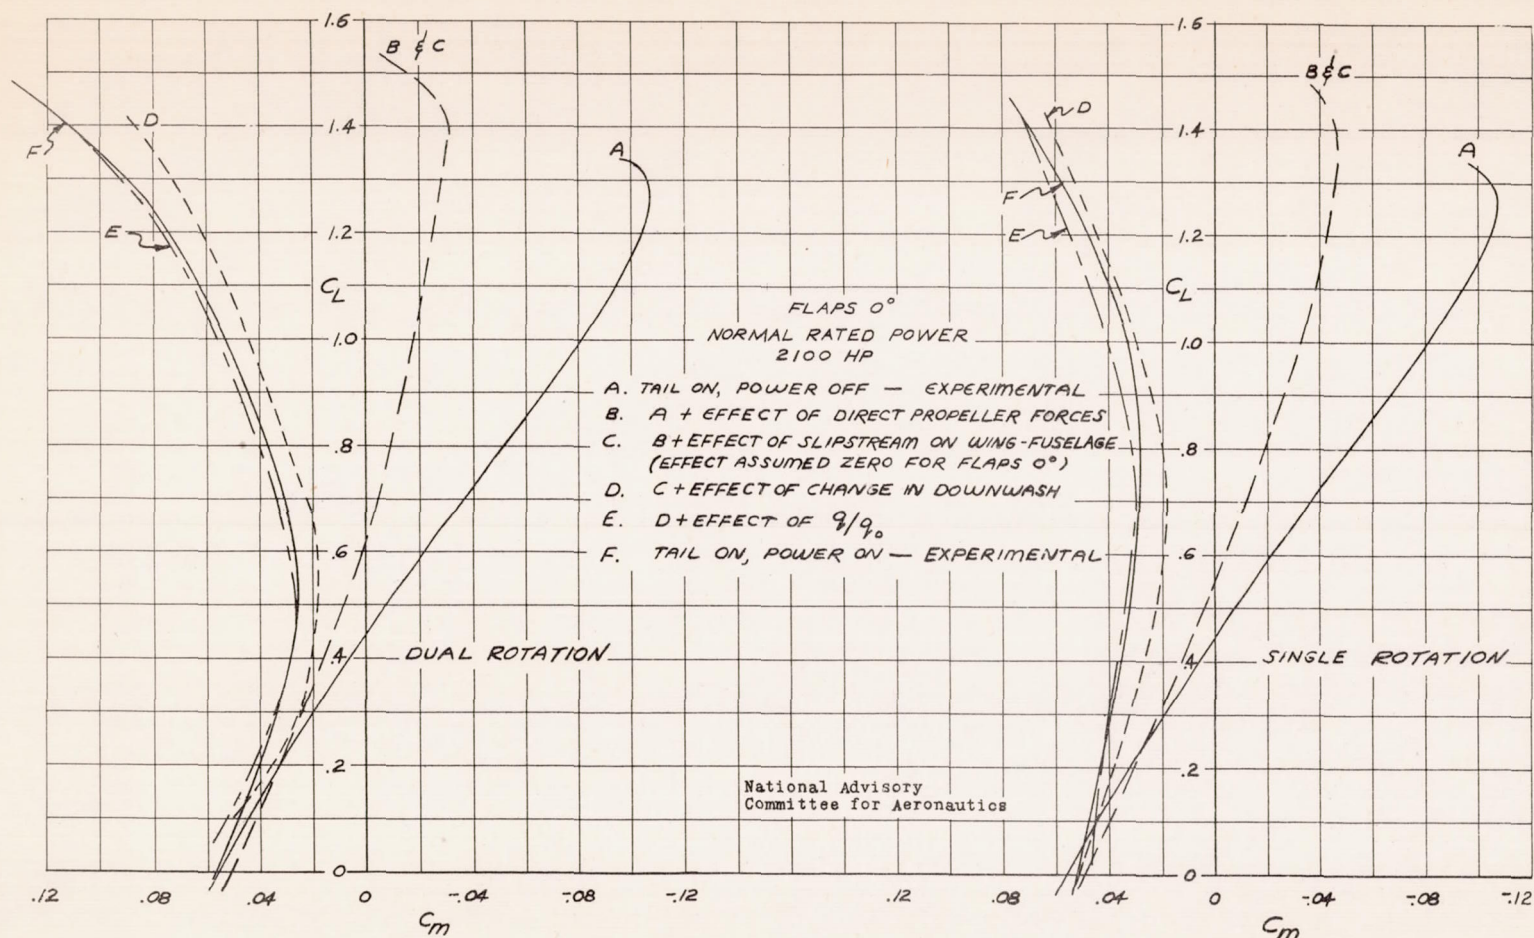 1.6
B & C
D
1.4
F
A
E
1.2
C_L
1.0
.8
.6
.4
DUAL ROTATION
.2
0
.12 .08 .04 0 -.04 -.08 -.12
C_m
FLAPS 0°
NORMAL RATED POWER
2100 HP
A. TAIL ON, POWER OFF — EXPERIMENTAL
B. A + EFFECT OF DIRECT PROPELLER FORCES
C. B + EFFECT OF SLIPSTREAM ON WING-FUSELAGE
(EFFECT ASSUMED ZERO FOR FLAPS 0°)
D. C + EFFECT OF CHANGE IN DOWNWASH
E. D + EFFECT OF q/q₀
F. TAIL ON, POWER ON — EXPERIMENTAL
National Advisory
Committee for Aeronautics
1.6
B & C
D
1.4
A
F
E
1.2
C_L
1.0
.8
.6
.4
SINGLE ROTATION
.2
0
.04 0 -.04 -.08 -.12
C_m